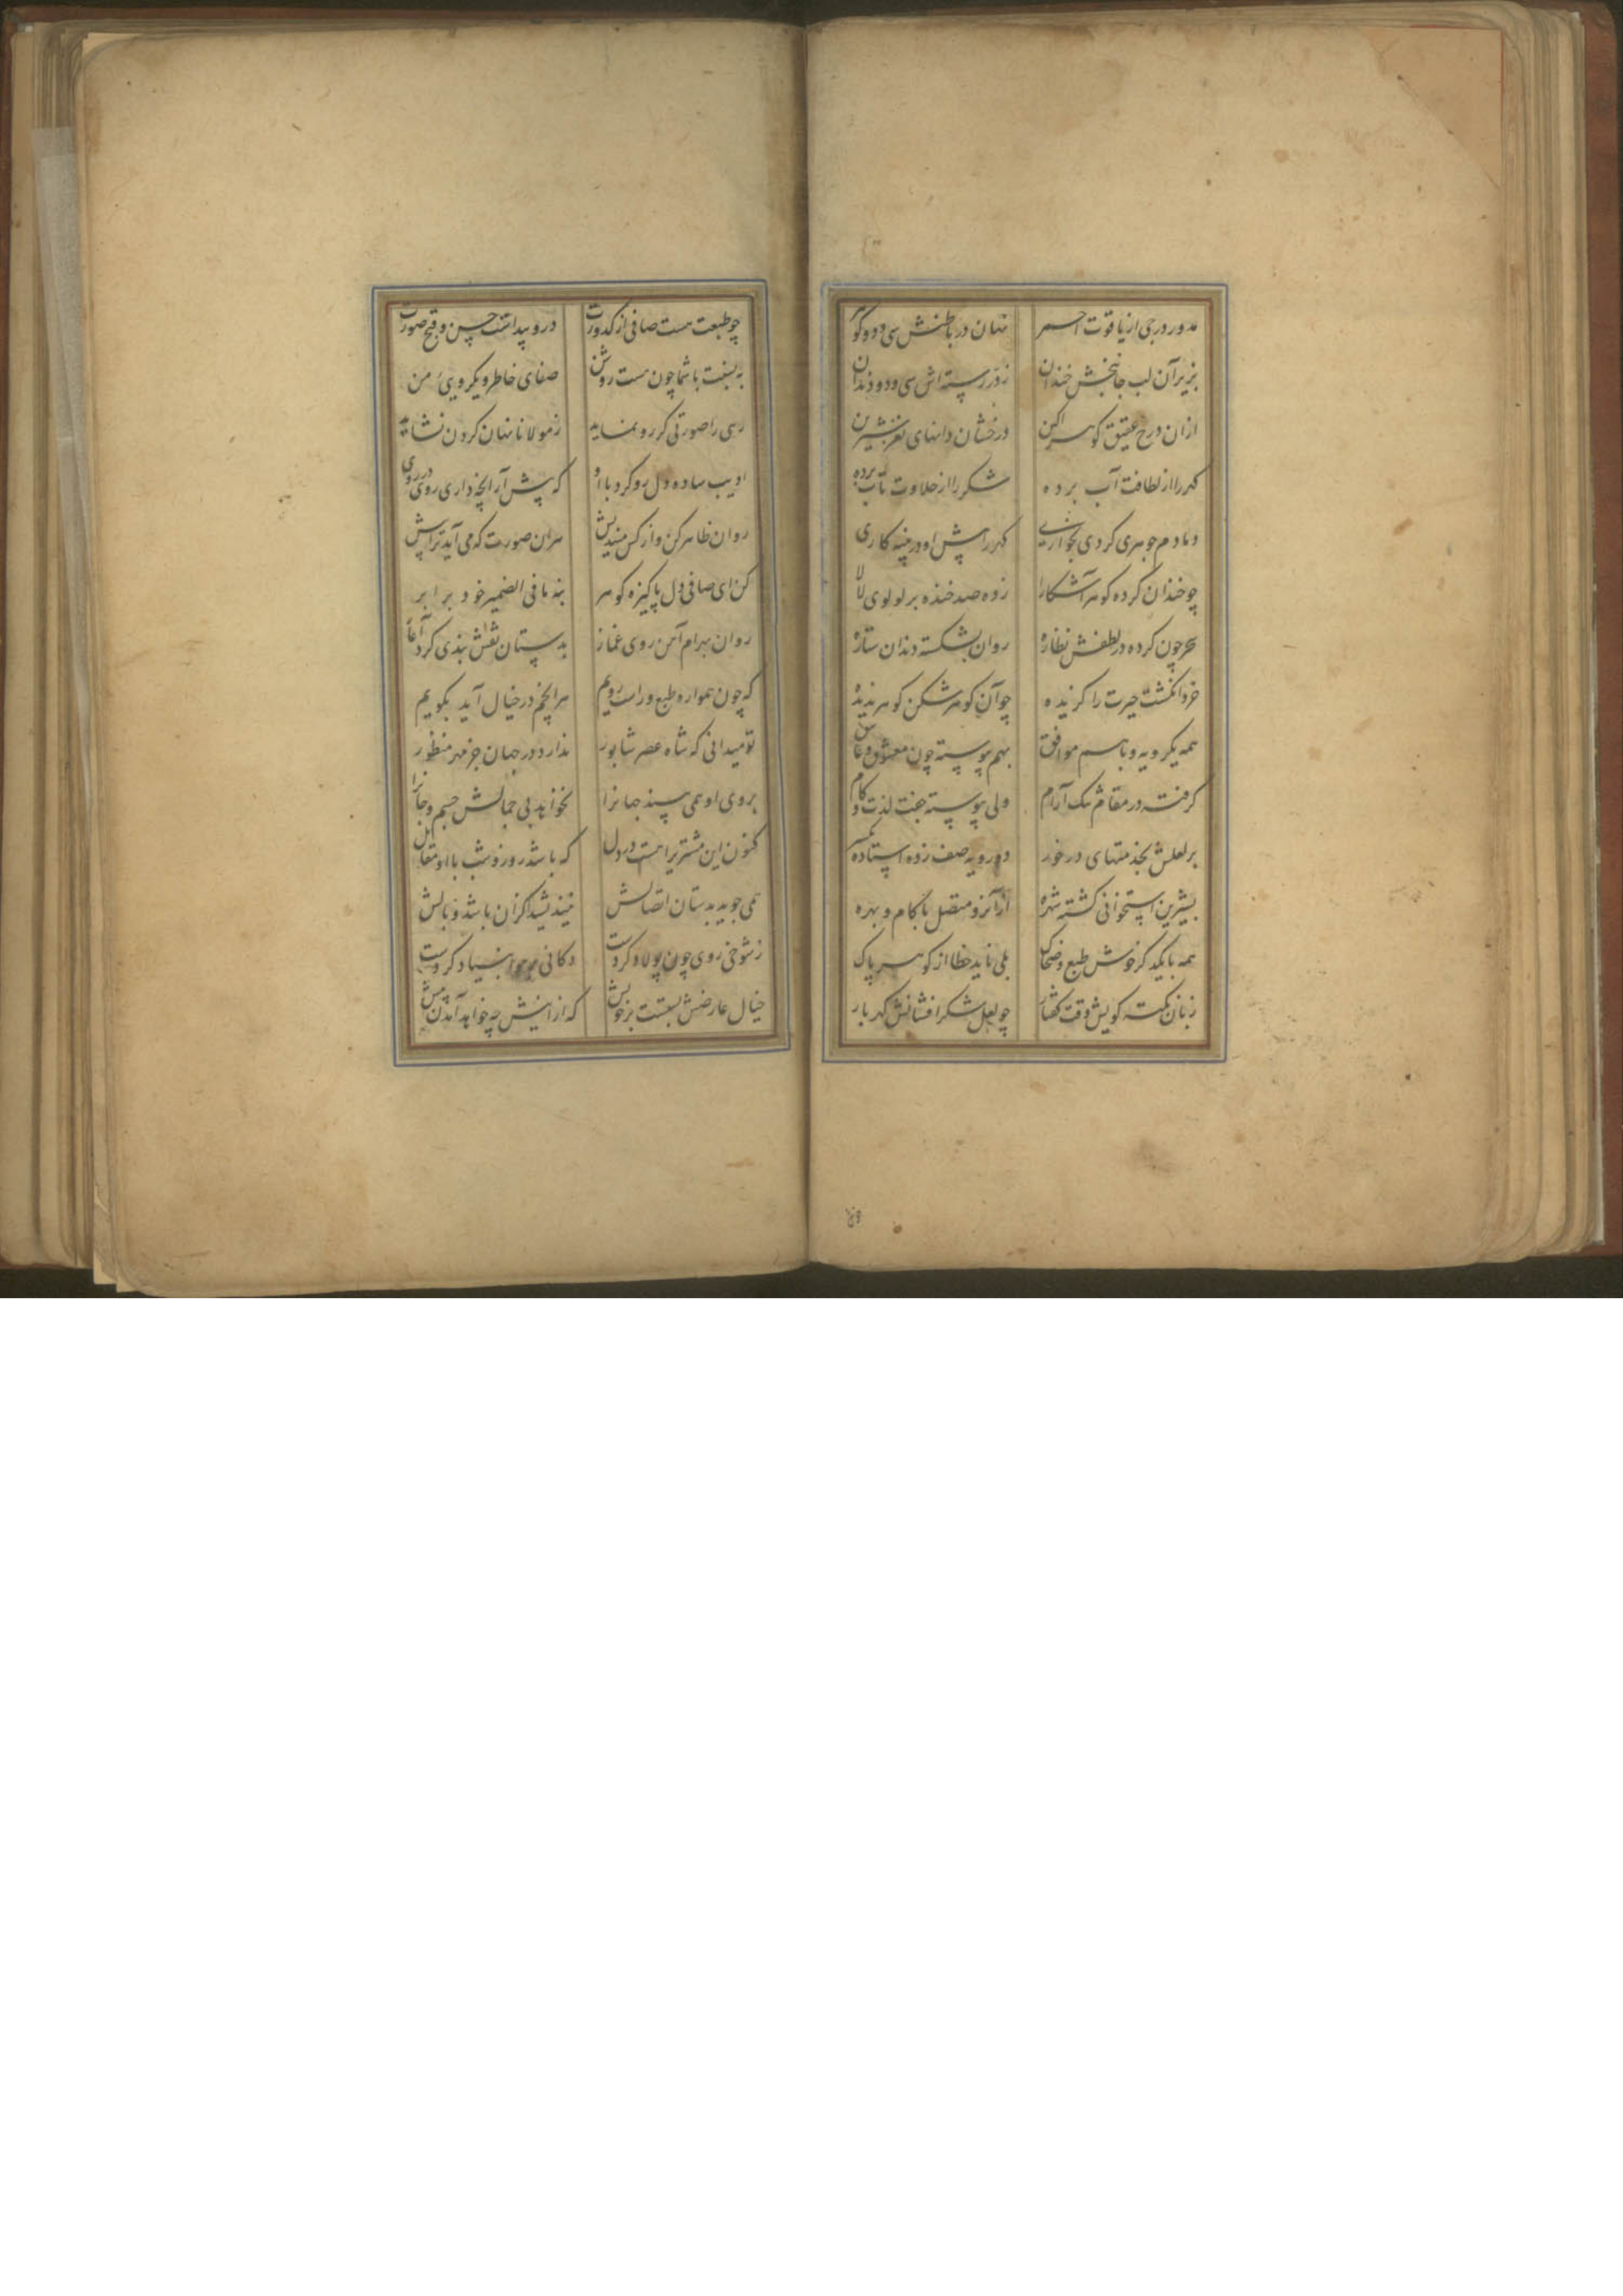 مدور درجی از یاقوت احمر نهان در باطنش سی و دو گوهر
بزیر آن لب جانبخش خندان ز در رسته اش سی و دو دندان
ازان درج عقیق گوهر آگین درخشان دانهای نغز شیرین
گهر را از لطافت آب برده شکر را از حلاوت تاب برده
دمادم جوهری کردی بخواری گهر را پیش او در پنبه کاری
چو خندان کرده گوهر آشکارا زده صد خنده بر لولوی لالا
سحر چون کرده در لطفش نظاره روان بشکسته دندان ستاره
خرد انگشت حیرت را گزیده چو آن گوهر شکن گوهر ندیده
همه یکرویه و باهم موافق بهم پیوسته چون معشوق و عاشق
گرفته در مقام تنک آرام ولی پیوسته جفت لذت و کام
بر لعلش بخدمتهای در خور دو رویه صف زده استاده
بشیرین استخوانی گشته شهره ازانرو متصل با کام و بهره
همه با یکدگر خوش طبع و ضحاک بلی ناید خطا از گوهر پاک
زبان نکته گویش وقت گفتار چو لعل شکر افشانش گهر بار
چو طبعت هست صافی از کدورت درو پیداشت حسن و قبح صورت
به نسبت با شما چون هست روشن صفای خاطر و یکرویی من
رهی را صورتی گر رو نماید ز مولانا نهان کردن نشاید
ادیب ساده دل رو کرد با او که پیش آر آنچه داری روی در روی
روان ظاهر کن و از کس میندیش هر آن صورت که می آید ترا پیش
کن ای صافی دل پاکیزه گوهر بنه ما فی الضمیر خود برابر
روان بهرام آهن روی غماز بدستان نقش بندی کرد آغاز
که چون همواره طبع و راست رویم هر آنچم در خیال آید بگویم
تو میدانی که شاه عصر شاپور ندارد در جهان جز مهر منظور
بروی او همی بیند جهانرا نخواهد بی جمالش جسم و جانرا
کنون این مشتریرا هست در دل که باشد روز و شب با او مقابل
همی جوید بدستان اتصالش نیندیشد اگر آن باشد وبالش
ز شوخی روی چون پولاد کردست دکانی بر هوا بنیاد کردست
خیال عارضش بستست بر خویش که از اینش چه خواهد آمدن پیش